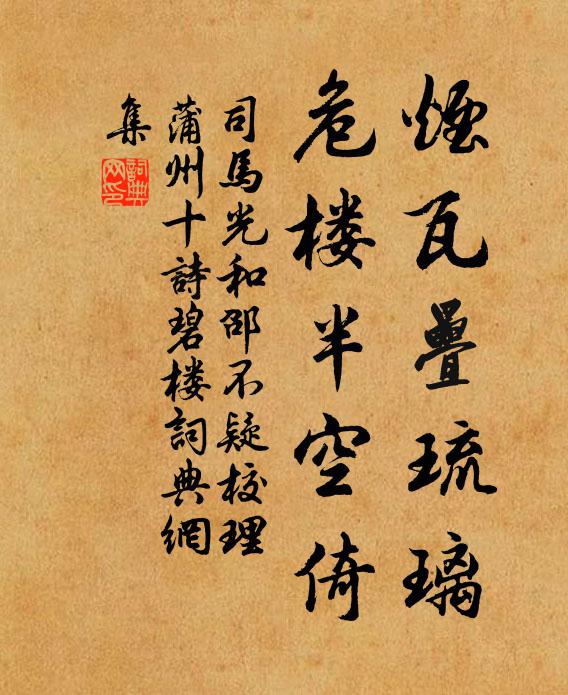 煙瓦疊琉璃
危楼半空倚
司馬光和邵不疑校理
蒲州十詩碧楼詞典網
集
詞典网印